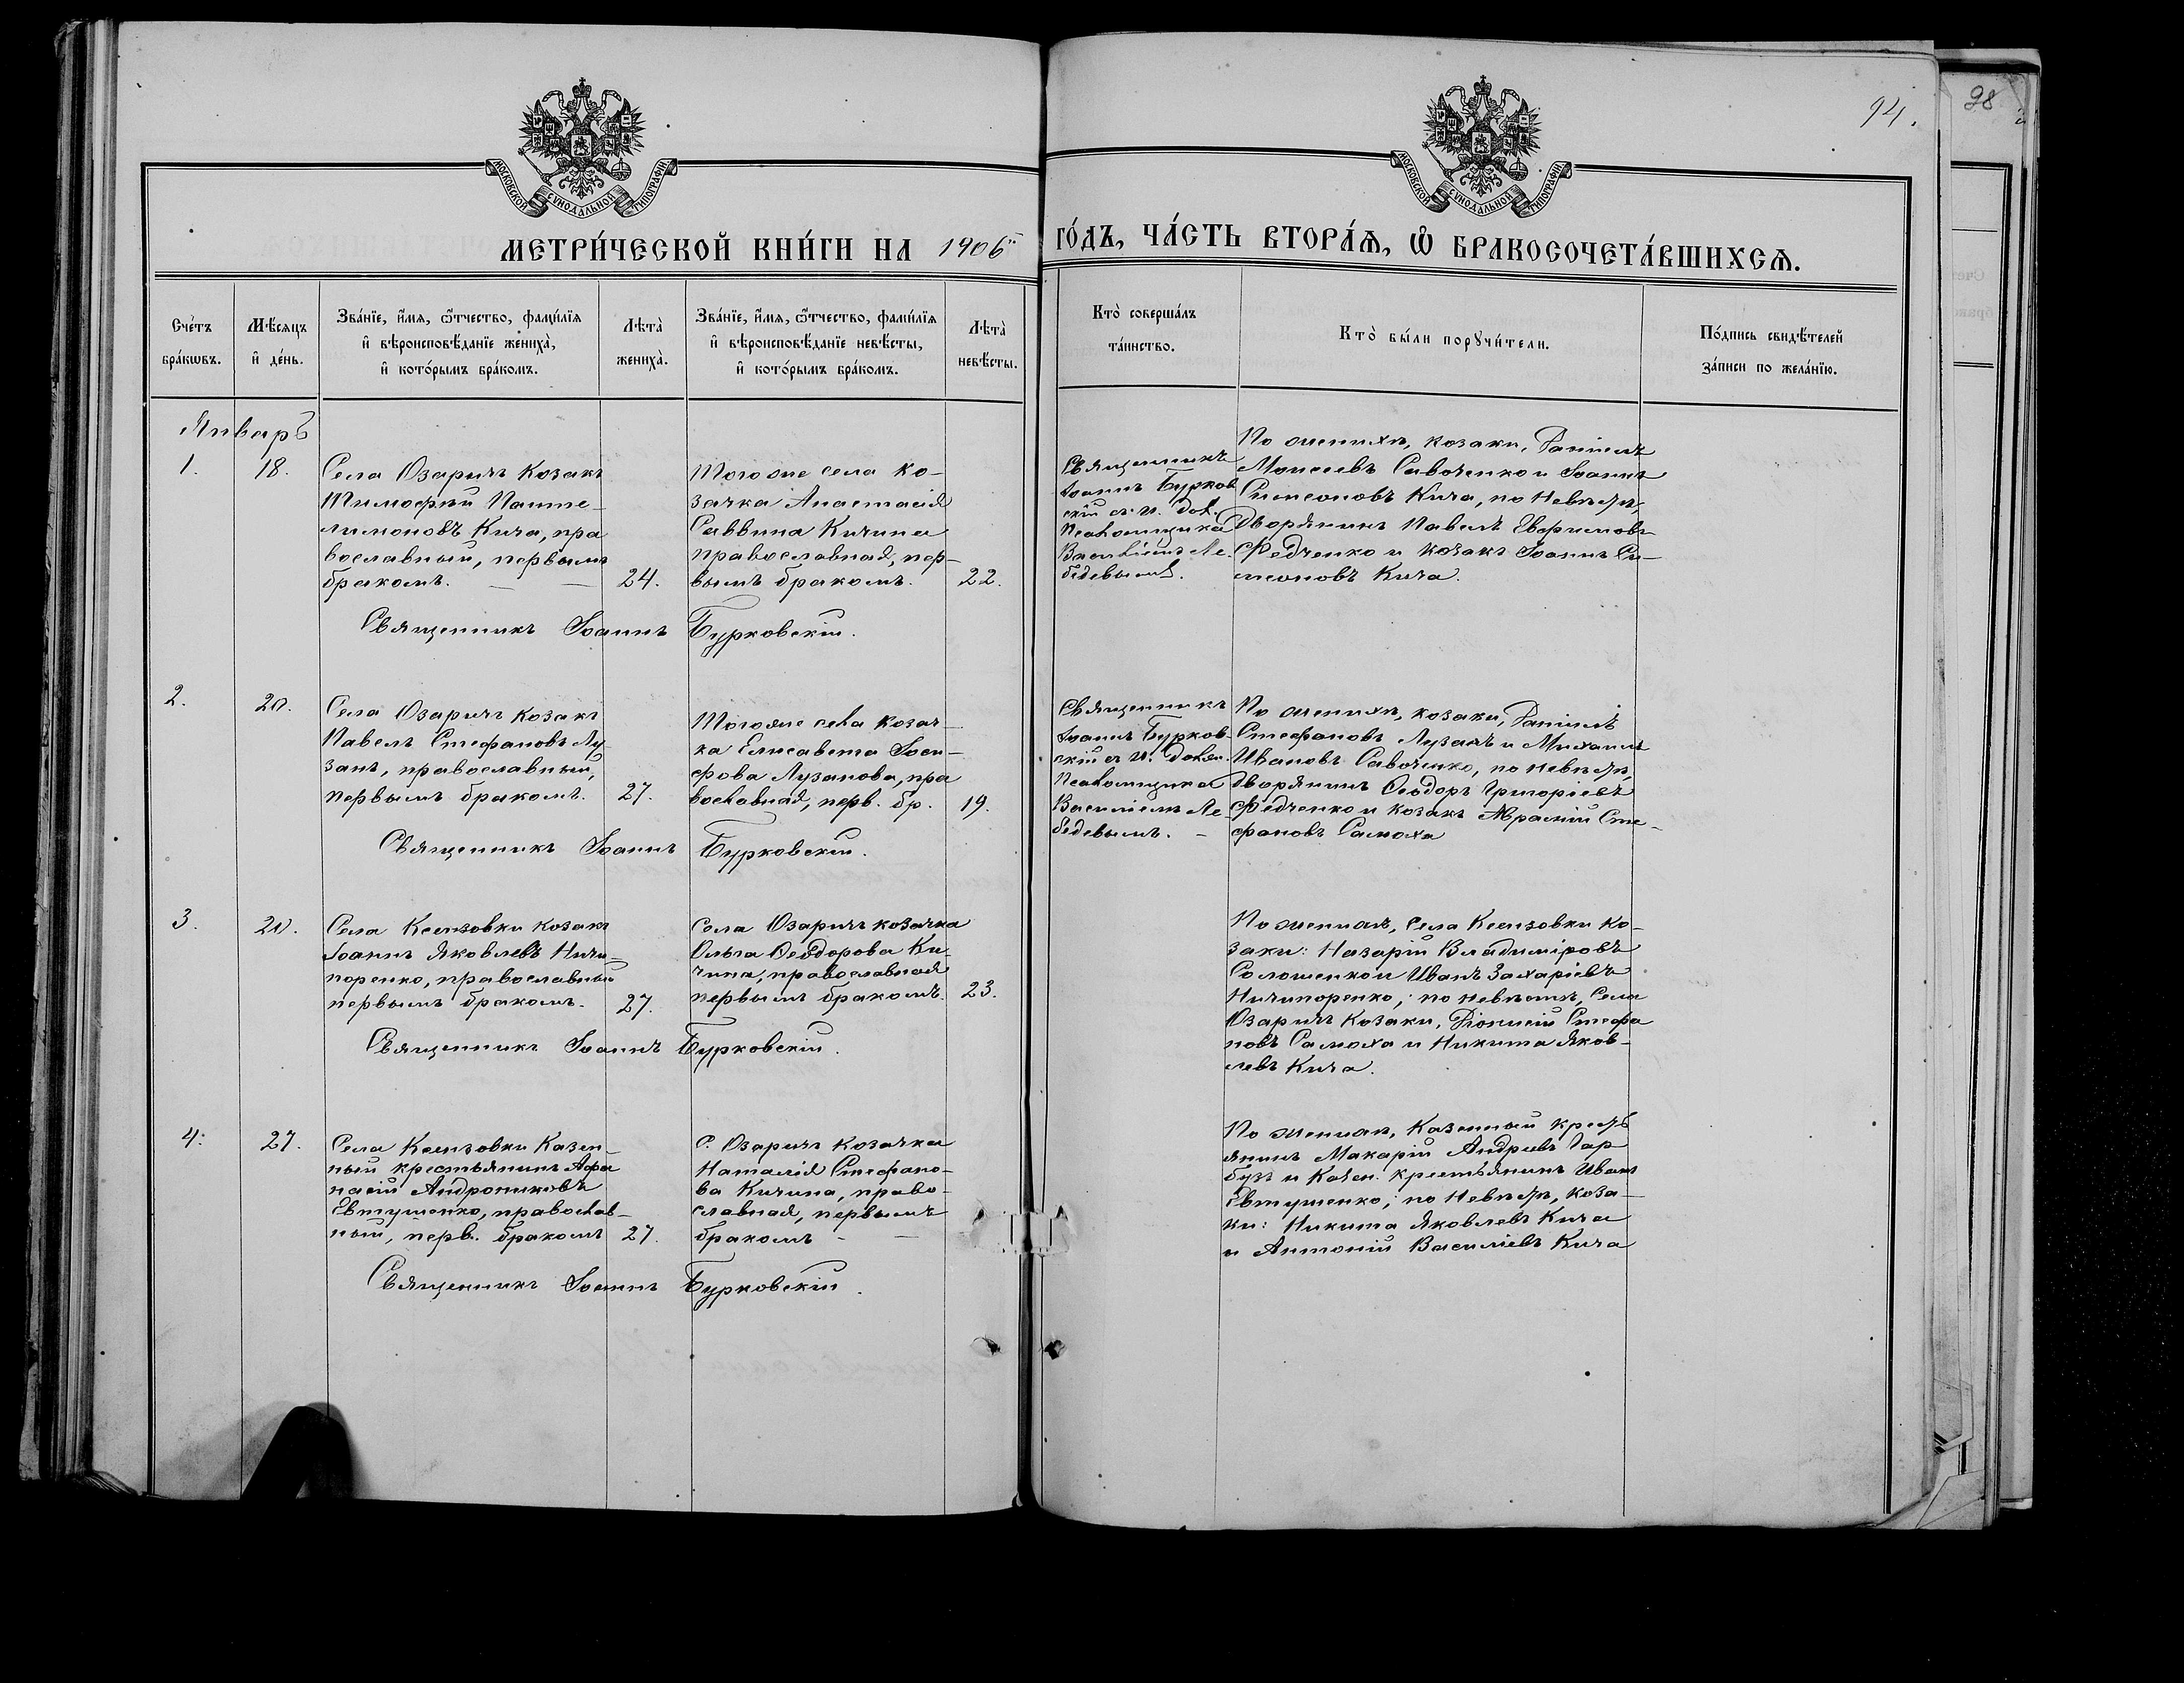 94.
98
МОСКОВСКОЙ СѴНОДАЛЬНОЙ ТИПОГРАФІИ
МОСКОВСКОЙ СѴНОДАЛЬНОЙ ТИПОГРАФІИ
МЕТРИ́ЧЕСКОЙ КНИ́ГИ НА 1906й
ГО́ДЪ, ЧА́СТЬ ВТОРА́Ѧ, Ѽ БРАКОСОЧЕТА́ВШИХСѦ.
Сче́тъ
бра́кѡвъ.
Мѣ́сѧцъ
и҆ де́нь.
Зва́нїе, и҆́мѧ, ѻ҆́тчество, фамѝлїѧ
и҆ вѣроисповѣ́данїе жениха̀,
и҆ кото́рымъ бра́комъ.
Лѣта̀
жениха̀.
Зва́нїе, и҆́мѧ, ѻ҆́тчество, фамѝлїѧ
и҆ вѣроисповѣ́данїе невѣ́сты,
и҆ кото́рымъ бра́комъ.
Лѣта̀
невѣ́сты.
Кто̀ соверша́лъ
та́инство.
Кто̀ бы́ли порꙋчи́тели.
По́дпись свидѣ́телей
за́писи по жела́нїю.
Январь
1.
18.
Села Озаричъ козакъ
Тимофѣй Панте-
лимоновъ Кича, пра
вославный, первымъ
бракомъ.
24.
Того же села ко-
зачка Анастасія
Саввина Кичина
православная, пер-
вымъ бракомъ.
22.
Священникъ
Іоаннъ Бурков
скій съ и. дол.
псаломщика
Василіемъ Ле-
бедевымъ.
По женихѣ, козаки, Даніилъ
Моисеевъ Савоченко и Іоаннъ
Симеоновъ Кича, по невѣстѣ,
Дворянинъ Павелъ Евфимовъ
Федченко и козакъ Іоаннъ Си-
меоновъ Кича.
Священникъ Іоаннъ Бурковскій.
2.
20.
Села Озаричъ козакъ
Павелъ Стефановъ Лу
занъ, православный,
первымъ бракомъ.
27.
Того же села козач-
ка Елисавета Іоси-
фова Лузанова, пра
вославная, перв. бр.
19.
Священникъ
Іоаннъ Бурков-
скій съ и. долж.
псаломщика
Василіемъ Ле-
бедевымъ.
По женихѣ, козаки, Даніилъ
Стефановъ Лузанъ и Михаилъ
Ивановъ Савоченко, по невѣстѣ,
дворянинъ Ѳеодоръ Григоріевъ
Федченко и козакъ Авраамій Сте-
фановъ Самоха
Священникъ Іоаннъ Бурковскій.
3.
20.
Села Ксензовки козакъ
Іоаннъ Яковлевъ Ничи-
поренко, православный
первымъ бракомъ.
27.
Села Озаричъ козачка
Ольга Ѳеодорова Ки-
чина, православная
первымъ бракомъ.
23.
По женихѣ, Села Ксензовки ко-
заки: Назарій Владиміровъ
Солошенко и Иванъ Захаріевъ
Ничипоренко; по невѣстѣ, Села
Озаричъ козаки, Діонисій Стефа
новъ Самоха и Никита Яков-
левъ Кича.
Священникъ Іоаннъ Бурковскій.
4.
27.
Села Ксензовки Казен-
ный крестьянинъ Афа
насій Андрониковъ
Евтушенко, православ-
ный, перв. бракомъ
27.
С. Озаричъ козачка
Наталія Стефано-
ва Кичина, право-
славная, первымъ
бракомъ
По женихѣ, Казенный крестъ
янинъ Макарій Андреевъ Гар
бузъ и Казен. крестьянинъ Иванъ
Евтушенко; по невѣстѣ, коза-
ки: Никита Яковлевъ Кича
и Антоній Василіевъ Кича
Священникъ Іоаннъ Бурковскій.